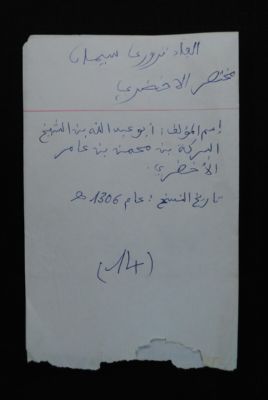 الحاد تزوري سيمان
مختصر الأخضري
إسم المؤلف: أبو عبد الله بن الشيخ
البركة بن محمد بن عامر
الأخضري.
تاريخ النسخ: عام 1306 هـ
(14)